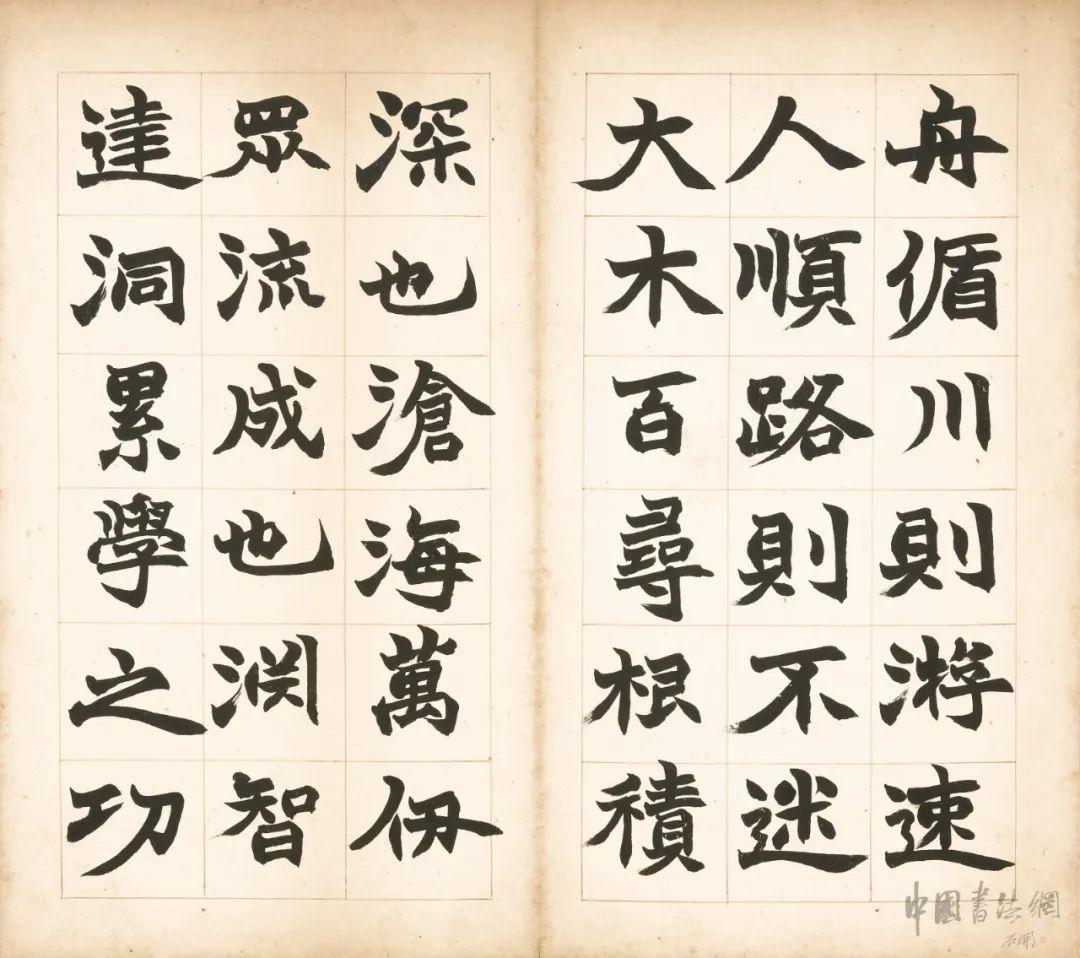 舟偱川則游速
人順路則不迷
大木百尋根積
深也滄海萬仞
眾流成也渊智
達洞累學之功
中國書法網